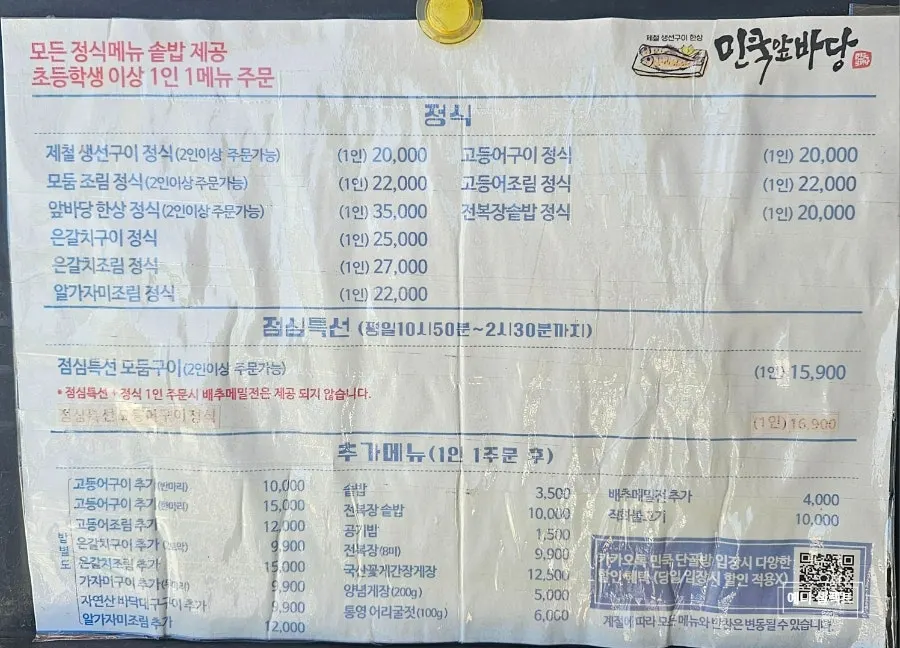 모든 정식메뉴 솥밥 제공
초등학생 이상 1인 1메뉴 주문
제철 생선구이 한상
민쿡앞바당
정식
제철 생선구이 정식(2인이상 주문가능) (1인) 20,000
모둠 조림 정식(2인이상 주문가능) (1인) 22,000
앞바당 한상 정식(2인이상 주문가능) (1인) 35,000
은갈치구이 정식 (1인) 25,000
은갈치조림 정식 (1인) 27,000
알가자미조림 정식 (1인) 22,000
고등어구이 정식 (1인) 20,000
고등어조림 정식 (1인) 22,000
전복장솥밥 정식 (1인) 20,000
점심특선 (평일10시50분~2시30분까지)
점심특선 모둠구이(2인이상 주문가능) (1인) 15,900
* 점심특선 + 정식 1인 주문시 배추메밀전은 제공 되지 않습니다.
점심특선 고등어구이 정식 (1인) 16,900
추가메뉴(1인 1주문 후)
밥별도
고등어구이 추가(반마리) 10,000
고등어구이 추가(반마리) 15,000
고등어조림 추가 12,000
은갈치구이 추가 9,900
은갈치조림 추가 15,000
가자미구이 추가 9,900
자연산 바닥대구구이 추가 9,900
알가자미조림 추가 12,000
솥밥 3,500
전복장 솥밥 10,000
공기밥 1,500
전복장(8미) 9,900
국산꽃게간장게장 12,500
양념게장(200g) 5,000
통영 어리굴젓(100g) 6,000
배추메밀전 추가 4,000
직화불고기 10,000
카카오톡 민쿡 단골방 입장시 다양한
할인 혜택 (당일 입장시 할인 적용X)
계절에 따라 모든 메뉴와 반찬은 변동될 수 있습니다.